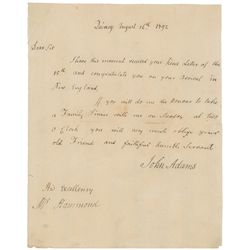 Quincy August 16th 1792
Dear Sir
I have this moment received your kind Letter of the
15th and congratulate you on your arrival in
New England.
If you will do me the Honour to take
a Family Dinner with me on Monday at two
O Clock you will very much oblige your
old Friend and faithful humble Servant
John Adams
His Excellency
Mr Hammond